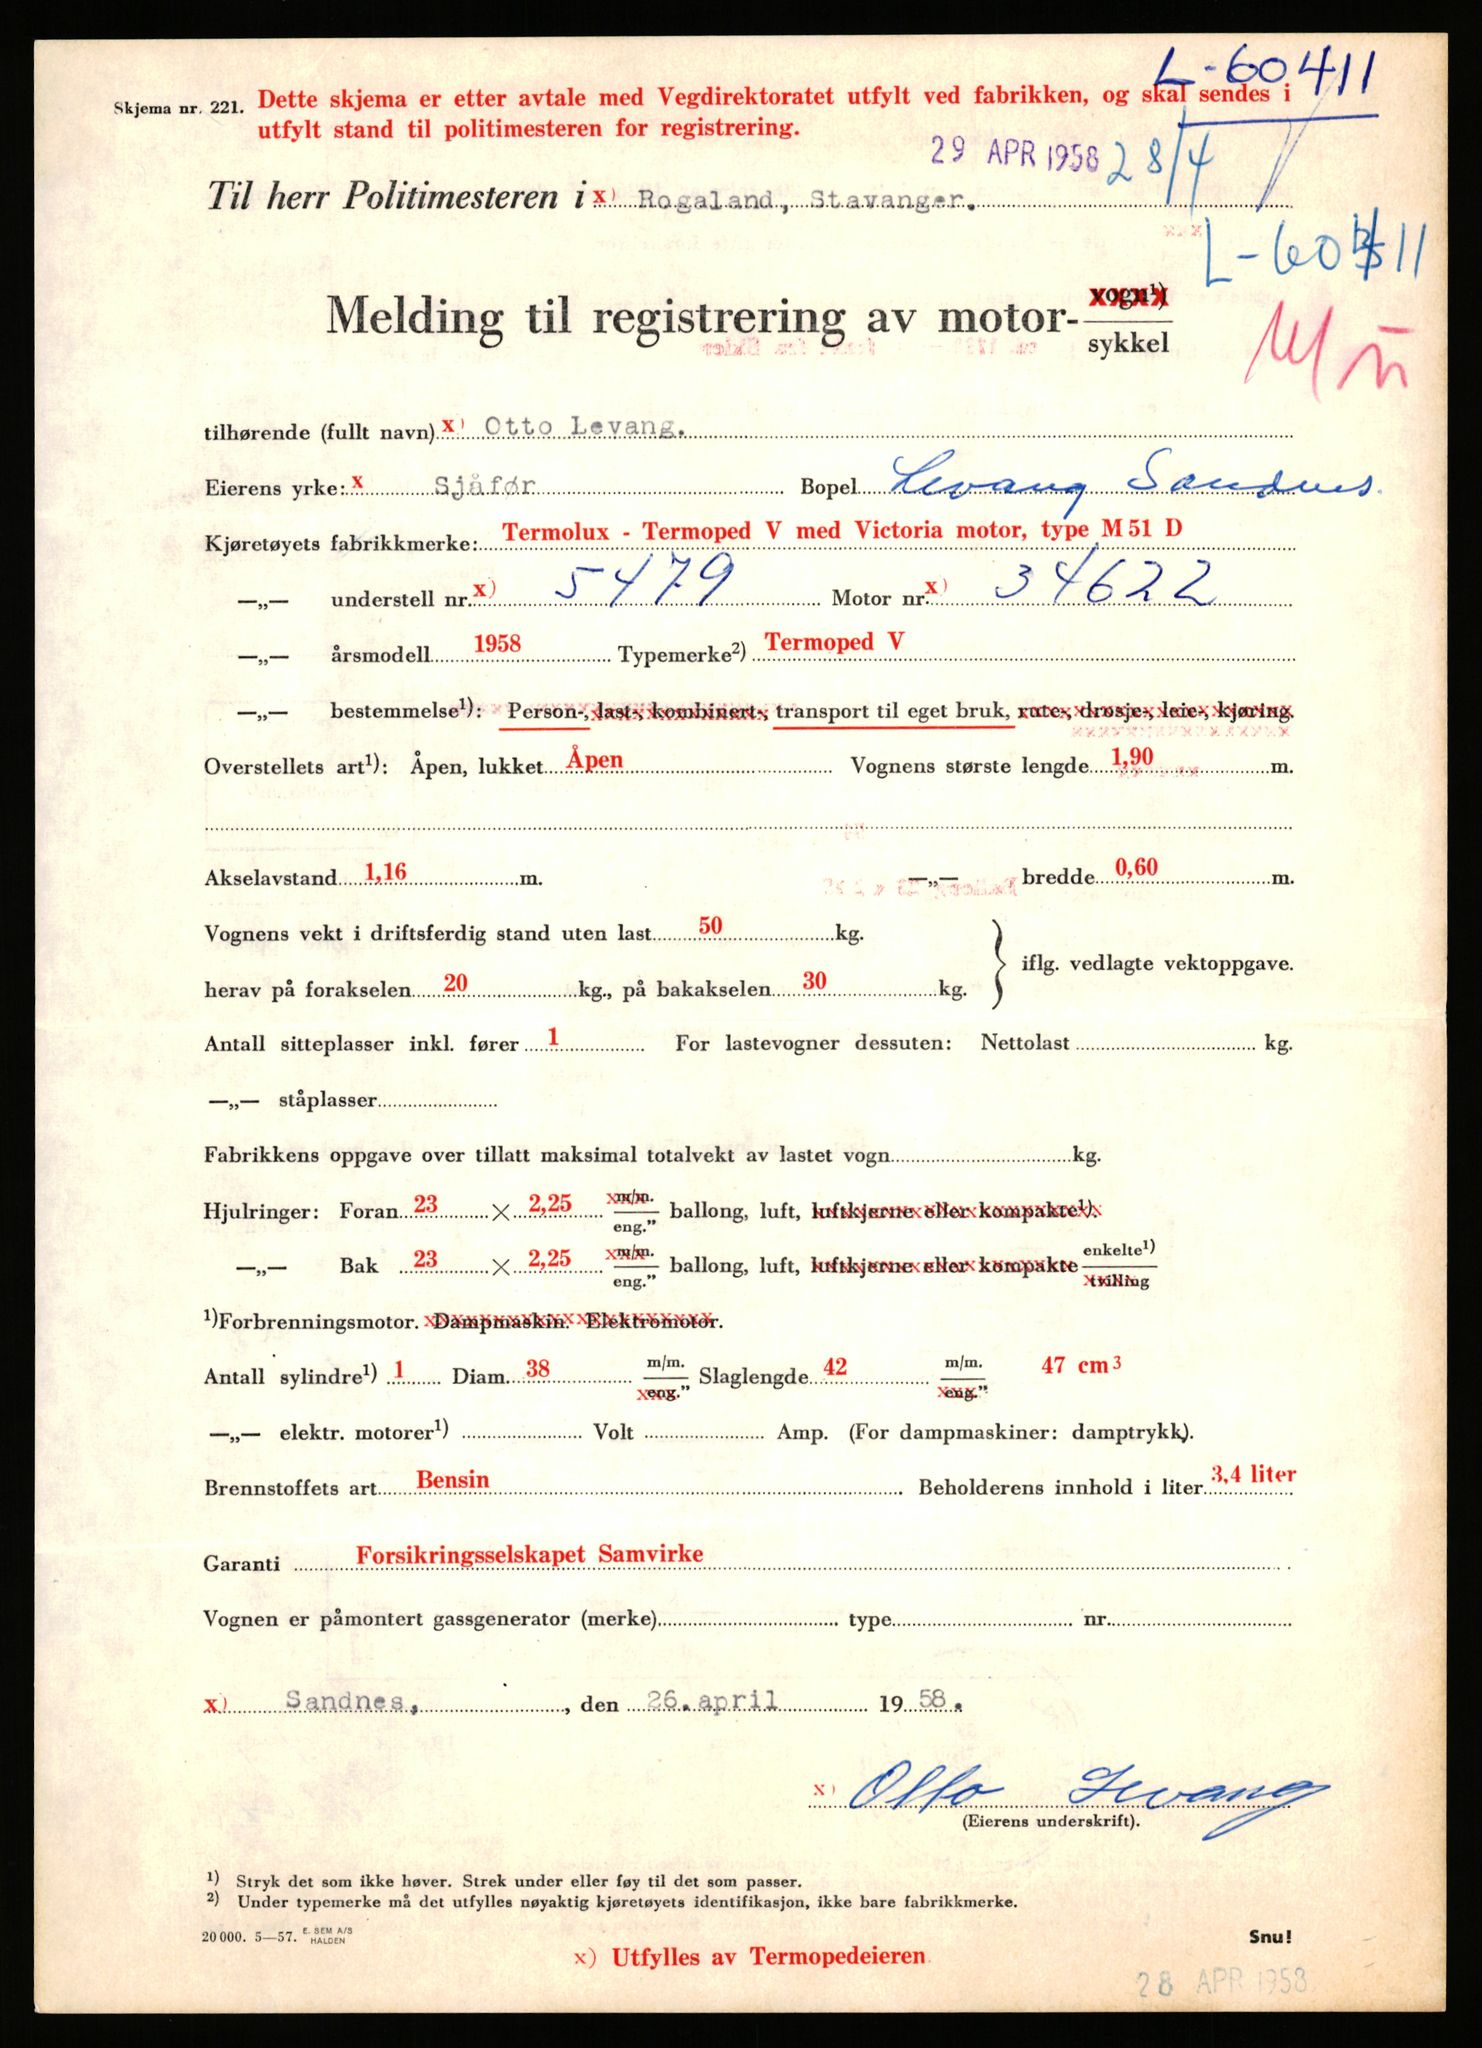 L-60411
Skjema nr. 221. Dette skjema er etter avtale med Vegdirektoratet utfylt ved fabrikken, og skal sendes i
utfylt stand til politimesteren for registrering.
29 APR 1958 28/4
Til herr Politimesteren i x) Rogaland, Stavanger.
L-60 11
Melding til registrering av motor- vogn¹)
sykkel
tilhørende (fullt navn) x) Otto Levang.
Eierens yrke: x Sjåfør Bopel Levang Sandnes.
Kjøretøyets fabrikkmerke: Termolux - Termoped V med Victoria motor, type M 51 D
—„— understell nr. x) 5479 Motor nr. x) 34622
—„— årsmodell 1958 Typemerke²) Termoped V
—„— bestemmelse¹): Person-, last-, kombinert-, transport til eget bruk, rute-, drosje-, leie-, kjøring.
Overstellets art¹): Åpen, lukket Åpen Vognens største lengde 1,90 m.
Akselavstand 1,16 m. —„— bredde 0,60 m.
Vognens vekt i driftsferdig stand uten last 50 kg.
iflg. vedlagte vektoppgave.
herav på forakselen 20 kg., på bakakselen 30 kg.
Antall sitteplasser inkl. fører 1 For lastevogner dessuten: Nettolast kg.
—„— ståplasser
Fabrikkens oppgave over tillatt maksimal totalvekt av lastet vogn kg.
Hjulringer: Foran 23 × 2,25 m/m. eng." ballong, luft, luftkjerne eller kompakte¹).
—„— Bak 23 × 2,25 m/m. eng." ballong, luft, luftkjerne eller kompakte enkelte¹) tvilling
¹)Forbrenningsmotor. Dampmaskin. Elektromotor.
Antall sylindre¹) 1 Diam. 38 m/m. eng." Slaglengde 42 m/m. eng." 47 cm³
—„— elektr. motorer¹) Volt Amp. (For dampmaskiner: damptrykk).
Brennstoffets art Bensin Beholderens innhold i liter 3,4 liter
Garanti Forsikringsselskapet Samvirke
Vognen er påmontert gassgenerator (merke) type nr.
x) Sandnes, , den 26. april 19 58.
x) Otto Levang
(Eierens underskrift).
¹) Stryk det som ikke høver. Strek under eller føy til det som passer.
²) Under typemerke må det utfylles nøyaktig kjøretøyets identifikasjon, ikke bare fabrikkmerke.
20 000. 5—57. E. SEM A/S HALDEN
Snu!
x) Utfylles av Termopedeieren
28 APR 1958